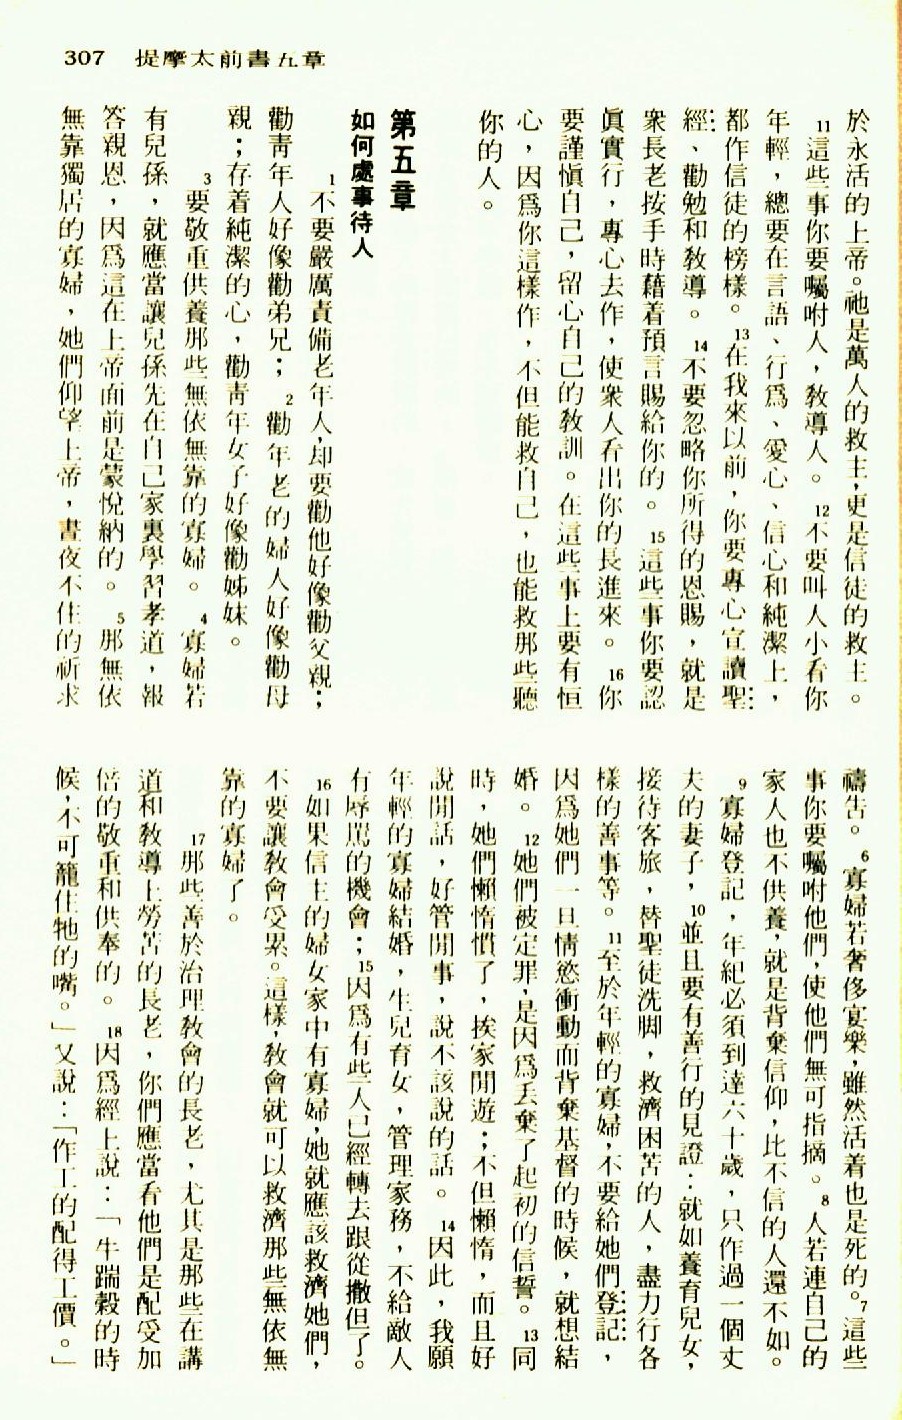 307 提摩太前書五章
於永活的上帝。祂是萬人的救主，更是信徒的救主。
11這些事你要囑咐人，教導人。12不要叫人小看你
年輕，總要在言語、行爲、愛心、信心和純潔上，
都作信徒的榜樣。13在我來以前，你要專心宣讀聖
經、勸勉和教導。14不要忽略你所得的恩賜，就是
衆長老按手時藉着預言賜給你的。15這些事你要認
眞實行，專心去作，使衆人看出你的長進來。16你
要謹愼自己，留心自己的教訓。在這些事上要有恒
心，因爲你這樣作，不但能救自己，也能救那些聽
你的人。
第五章
如何處事待人
1不要嚴厲責備老年人，却要勸他好像勸父親；
勸靑年人好像勸弟兄；2勸年老的婦人好像勸母
親；存着純潔的心，勸靑年女子好像勸姊妹。
3要敬重供養那些無依無靠的寡婦。4寡婦若
有兒孫，就應當讓兒孫先在自己家裏學習孝道，報
答親恩，因爲這在上帝面前是蒙悅納的。5那無依
無靠獨居的寡婦，她們仰望上帝，晝夜不住的祈求
禱告。6寡婦若奢侈宴樂，雖然活着也是死的。7這些
事你要囑咐他們，使他們無可指摘。8人若連自己的
家人也不供養，就是背棄信仰，比不信的人還不如。
9寡婦登記，年紀必須到達六十歲，只作過一個丈
夫的妻子，10並且要有善行的見證：就如養育兒女，
接待客旅，替聖徒洗脚，救濟困苦的人，盡力行各
樣的善事等。11至於年輕的寡婦，不要給她們登記，
因爲她們一旦情慾衝動而背棄基督的時候，就想結
婚。12她們被定罪，是因爲丢棄了起初的信誓。13同
時，她們懶惰慣了，挨家閒遊；不但懶惰，而且好
說閒話，好管閒事，說不該說的話。14因此，我願
年輕的寡婦結婚，生兒育女，管理家務，不給敵人
有辱駡的機會；15因爲有些人已經轉去跟從撒但了。
16如果信主的婦女家中有寡婦，她就應該救濟她們，
不要讓教會受累。這樣，教會就可以救濟那些無依無
靠的寡婦了。
17那些善於治理教會的長老，尤其是那些在講
道和教導上勞苦的長老，你們應當看他們是配受加
倍的敬重和供奉的。18因爲經上說：「牛踹穀的時
候，不可籠住牠的嘴。」又說：「作工的配得工價。」